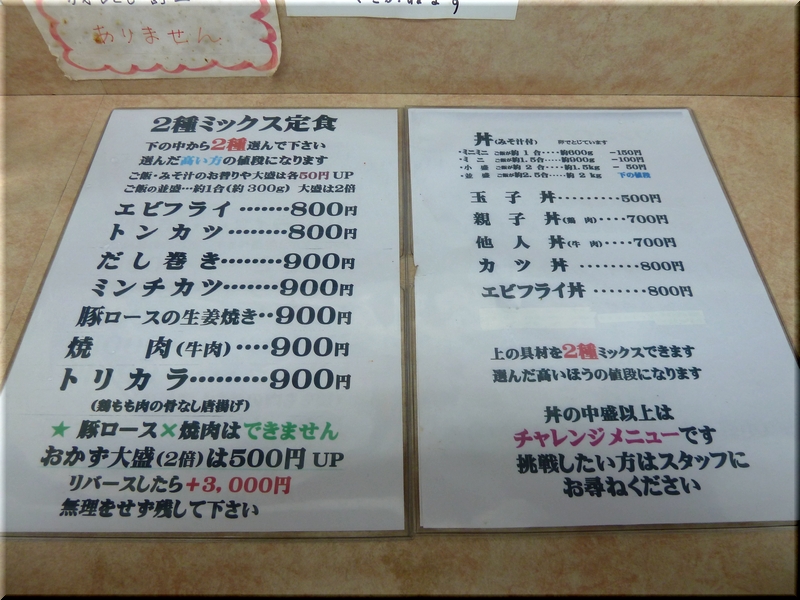 ありません
2種ミックス定食
下の中から2種選んで下さい
選んだ高い方の値段になります
ご飯・みそ汁のお替りや大盛は各50円UP
ご飯の並盛…約1合(約300g) 大盛は2倍
エビフライ………800円
トンカツ………800円
だし巻き………900円
ミンチカツ………900円
豚ロースの生姜焼き‥900円
焼 肉(牛肉)‥‥900円
トリカラ………900円
(鶏もも肉の骨なし唐揚げ)
★ 豚ロース×焼肉はできません
おかず大盛(2倍)は500円 UP
リバースしたら+3,000円
無理をせず残して下さい
丼(みそ汁付) 卵でとじています
・ミニミニ ご飯が約 1 合‥‥約600g −150円
・ミ ニ ご飯が約1.5合‥‥約900g −100円
・小 盛 ご飯が約 2 合‥‥約1.5kg − 50円
・並 盛 ご飯が約2.5合‥‥約 2 kg 下の値段
玉 子 丼………500円
親 子 丼(鶏 肉)‥‥700円
他 人 丼(牛 肉)‥‥700円
カ ツ 丼 ………800円
エビフライ丼 ………800円
上の具材を2種ミックスできます
選んだ高いほうの値段になります
丼の中盛以上は
チャレンジメニューです
挑戦したい方はスタッフに
お尋ねください